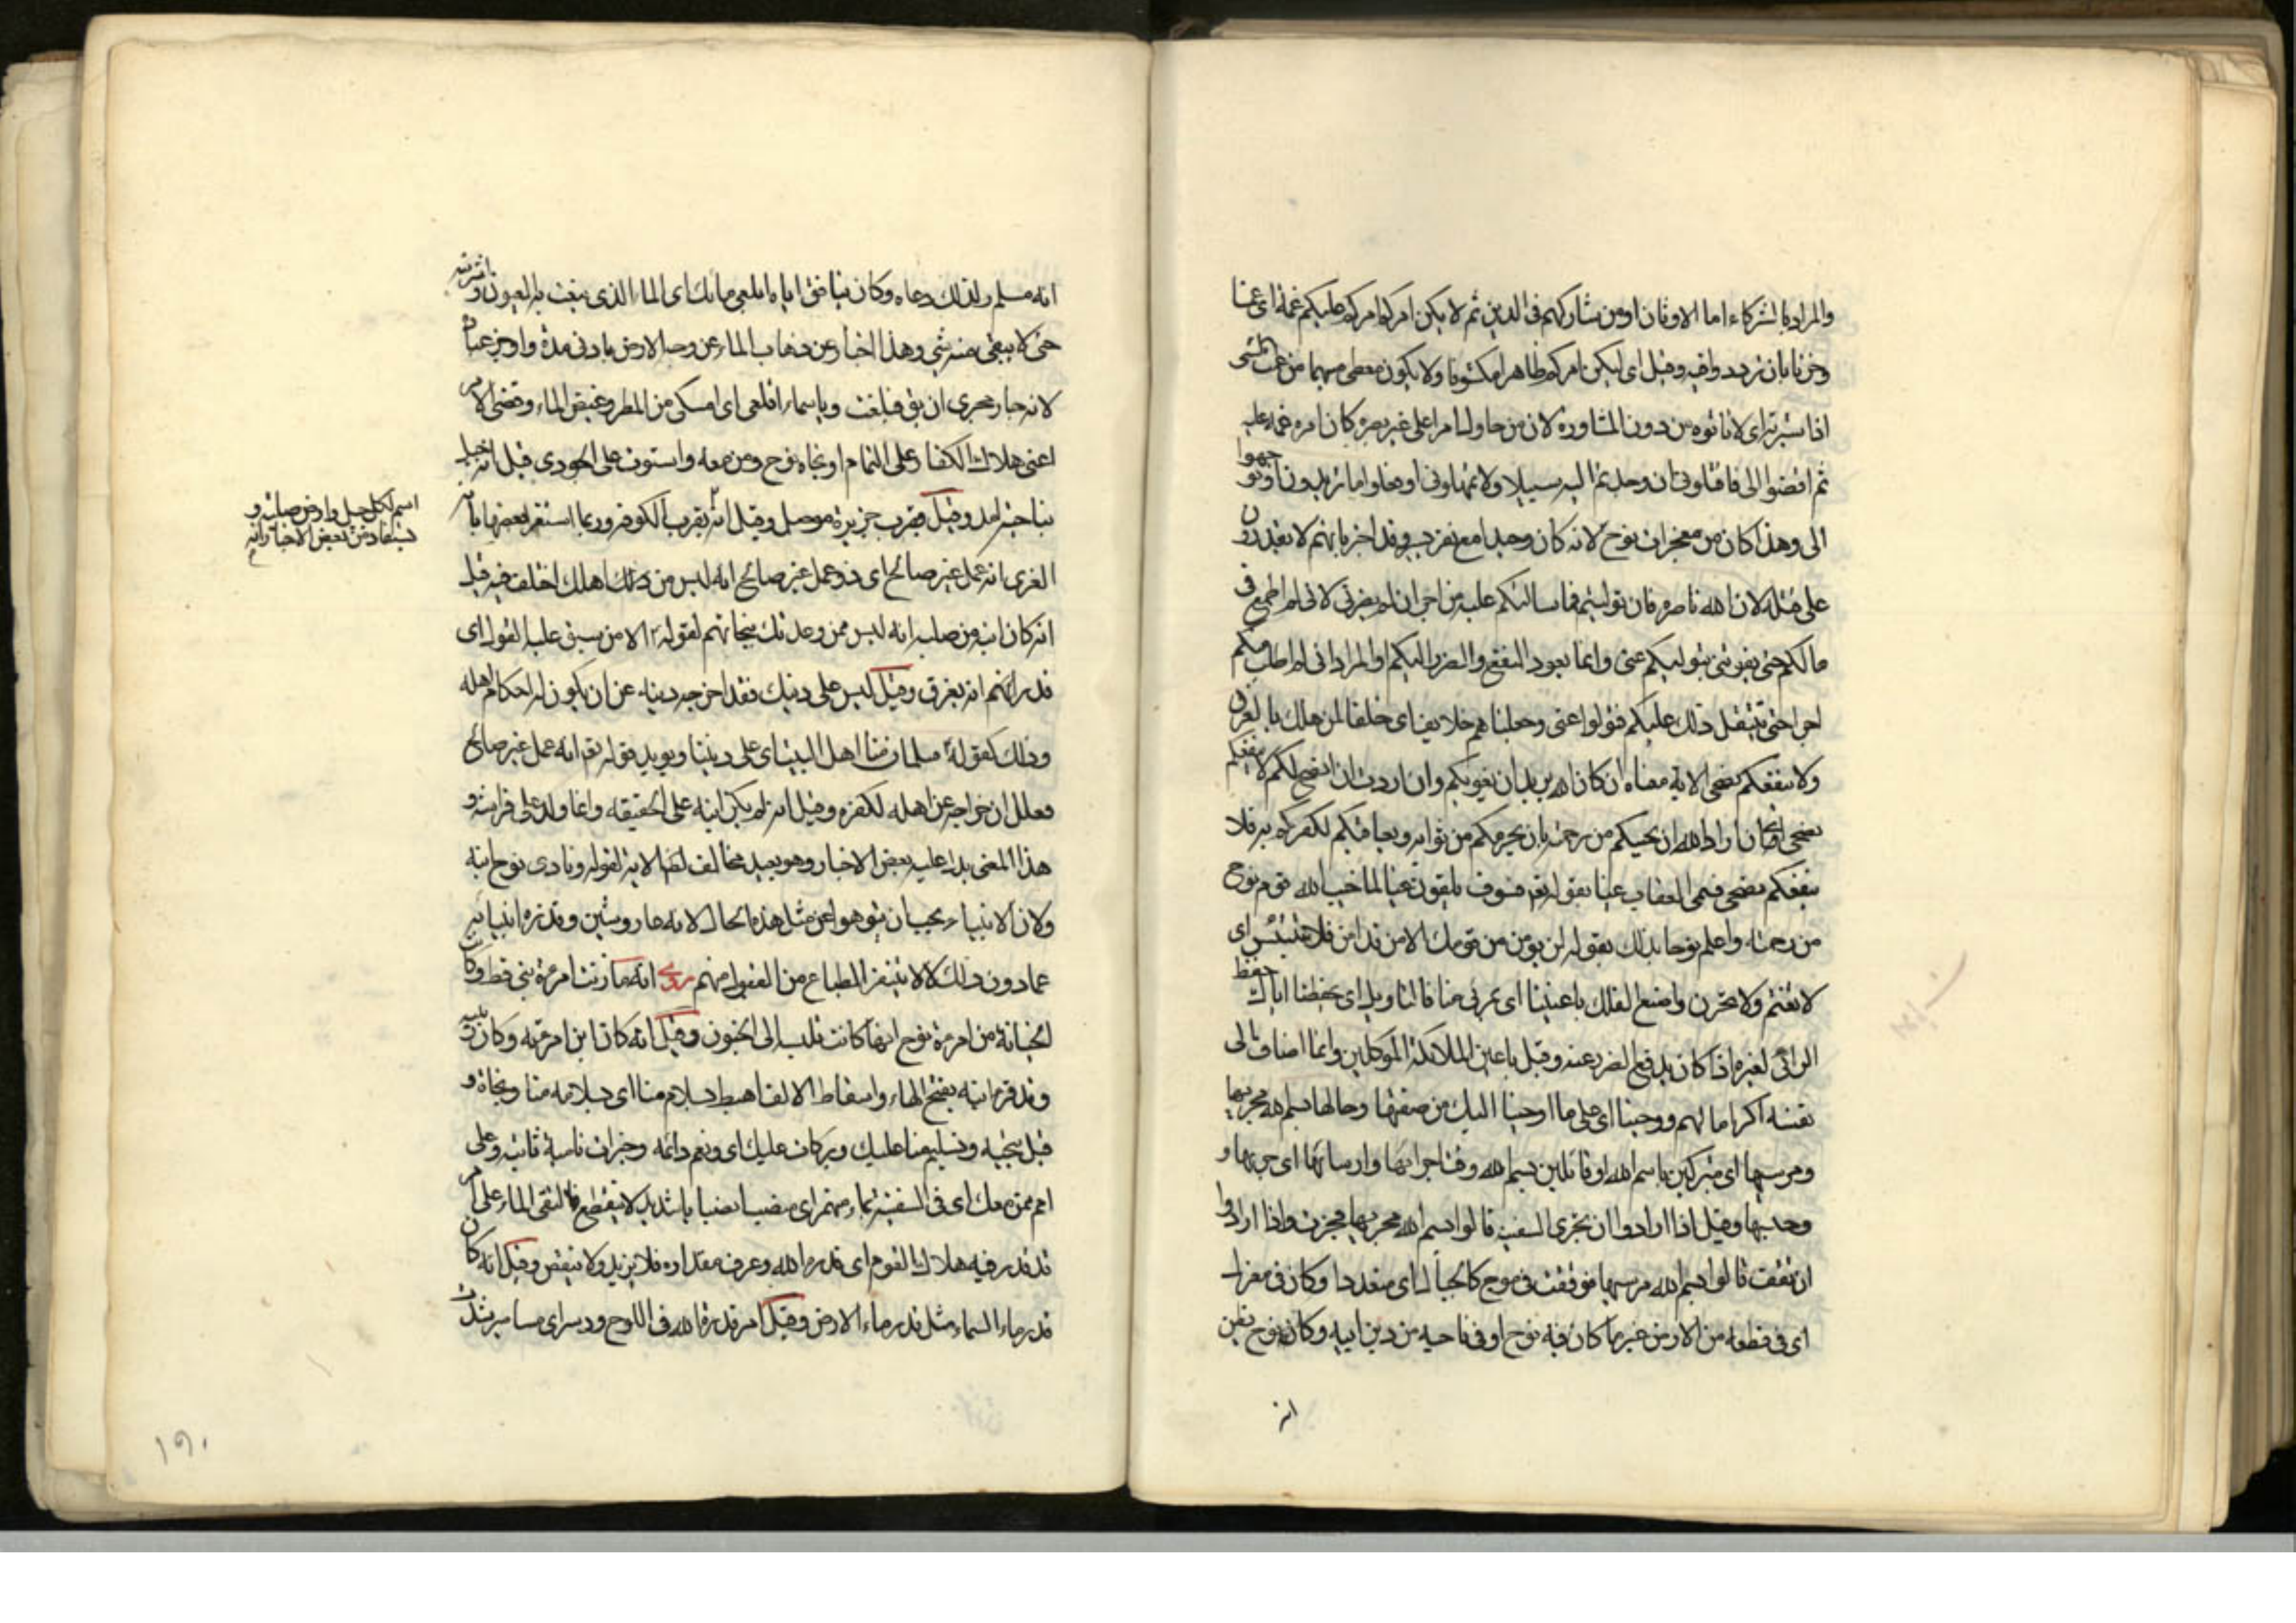 والمراد بالشركاء اما الاوثان او من شاركهم فى الدين ثم لا يكن امركم امركم عليكم غمة اى غما
وحزنا بان ترددوا فيه وقيل اى ليكن امركم ظاهرا مكشوفا ولا يكون مغطى مبهما من غممت الشى
اذا سترته اى لا تاتوه من دون المشاورة لان من حاول امرا على غير كان امره غمة عليه
ثم اقضوا الى فاقتلونى ان وجدتم اليه سبيلا ولا تمهلونى او افعلوا ما تريدون او توجهوا
الى وهذا كان من معجزات نوح لانه كان وحيدا مع نفر وقد اخبر بانهم لا يقدرون
على قتله لان الله ناصره فان توليتم فما سالتكم عليه من اجر ان لم يضرنى لانى لم اطمع فى
مالكم حتى يفوتنى بتوليكم عنى وانما يعود النفع والضر اليكم او المراد انى لم اطلب منكم
اجرا حتى يثقل ذلك عليكم فتولوا عنى وجعلناهم خلايف اى خلفا لمن هلك بالغرق
ولا ينفعكم نصحى الاية معناه ان كان الله يريد ان يغويكم وان اردت ان انصح لكم لا ينفعكم
نصحى ان اراد الله ان يخيبكم من رحمته بان يحرمكم من ثوابه ويعاقبكم لكفركم به فلا
ينفعكم نصحى فسمى العقاب غيا بقوله تعم فسوف يلقون غيا لما خيب الله قوم نوح
من رحمته واعلم نوحا بذلك بقوله لن يومن من قومك الا من قد امن فلا تبتئس اى
لا تغتم ولا تحزن واصنع الفلك باعيننا اى بمرئى منا والتاويل اى بحفظنا اياك حفظ
الرائى لغيره اذا كان يدفع الضرر عنه وقيل باعين الملائكة الموكلين وانما اضاف الى
نفسه اكراما لهم ووحينا اى على ما اوحينا اليك من صفتها وحالها بسم الله مجريها
ومرسيها اى متبركين باسم الله او قائلين بسم الله وقت اجرائها وارسائها اى جريها و
وقيل اذا ارادوا ان تجرى السفينة قالوا بسم الله مجريها فجرت واذا ارادوا
ان تقف قالوا بسم الله مرسيها فوقفت فى موج كالجبال اى وكان فى معزل
اى فى قطعة من الارض غير ما كان فيه نوح او فى ناحية من دين ابيه وكان نوح يظن
انه
انه مسلم ولذلك دعاه وكان ينافق اباه ابلعى مائك اى الماء الذى نبعت به العيون
حتى لا يبقى منه شئ وهذا اخبار عن ذهاب الماء عن وجه الارض بادنى مدة واوجز عبارة
لانه جار مجرى ان يق فبلعت ويا سماء اقلعى اى امسكى من المطر وغيض الماء وقضى الامر
اعنى هلاك الكفار على التمام او نجاة نوح ومن معه واستوت على الجودى قيل انه جبل
بناحية امد وقيل بقرب جزيرة موصل وقيل انه بقرب الكوفة وربما استقر بعضها بانه
اسم لكل جبل وارض صلبة و
يستفاد من بعض الاخبار انه
الغرى انه عمل غير صالح اى ذو عمل غير صالح انه ليس من اهلك اختلف فيه قيل
انه كان ابنه من صلبه انه ليس ممن وعدتك بنجاتهم لقوله الا من سبق عليه القول اى
انه يغرق وقيل ليس على دينك فقد اخرجه دينه عن ان يكون له احكام اهله
وذلك كقوله سلمان منا اهل البيت اى على ديننا ويويده قوله تعم انه عمل غير صالح
فعلل اخراجه عن اهله لكفره وقيل انه لم يكن ابنه على الحقيقة وانما ولد على فراشه و
هذا المعنى يدل عليه بعض الاخبار وهو بعيد مخالف لنص الاية لقوله ونادى نوح ابنه
ولان الانبياء يجب ان ينزهوا عن مثل هذه الحال لانه عار وشين وقد نزه انبيائه
عما دون ذلك لئلا ينفر الطباع من القبول منهم روى انه ما زنت امرءة نبى قط وكانت
الخيانة من امرءة نوح انها كانت تنسبه الى الجنون وقيل انه كان ابن امرءته وكان ربيبه
وقد قرء ابنه بفتح الهاء واسقاط الالف اهبط بسلام منا اى بسلامة منا ونجاة و
قيل بتحية وتسليم منا عليك وبركات عليك اى ونعم دائمة وخيرات نامية ثابتة وعلى
امم ممن معك اى فى السفينة بماء منهمر اى منصب انصبابا شديدا لا ينقطع فالتقى الماء على امر
قد قدر فيه هلاك القوم اى قدره الله وعرف مقداره فلا يزيد ولا ينقص وقيل انه كان
قدر ماء السماء مثل قدر ماء الارض وقيل امر قدره الله فى اللوح ودسر اى مسامير شدت
١٩٠